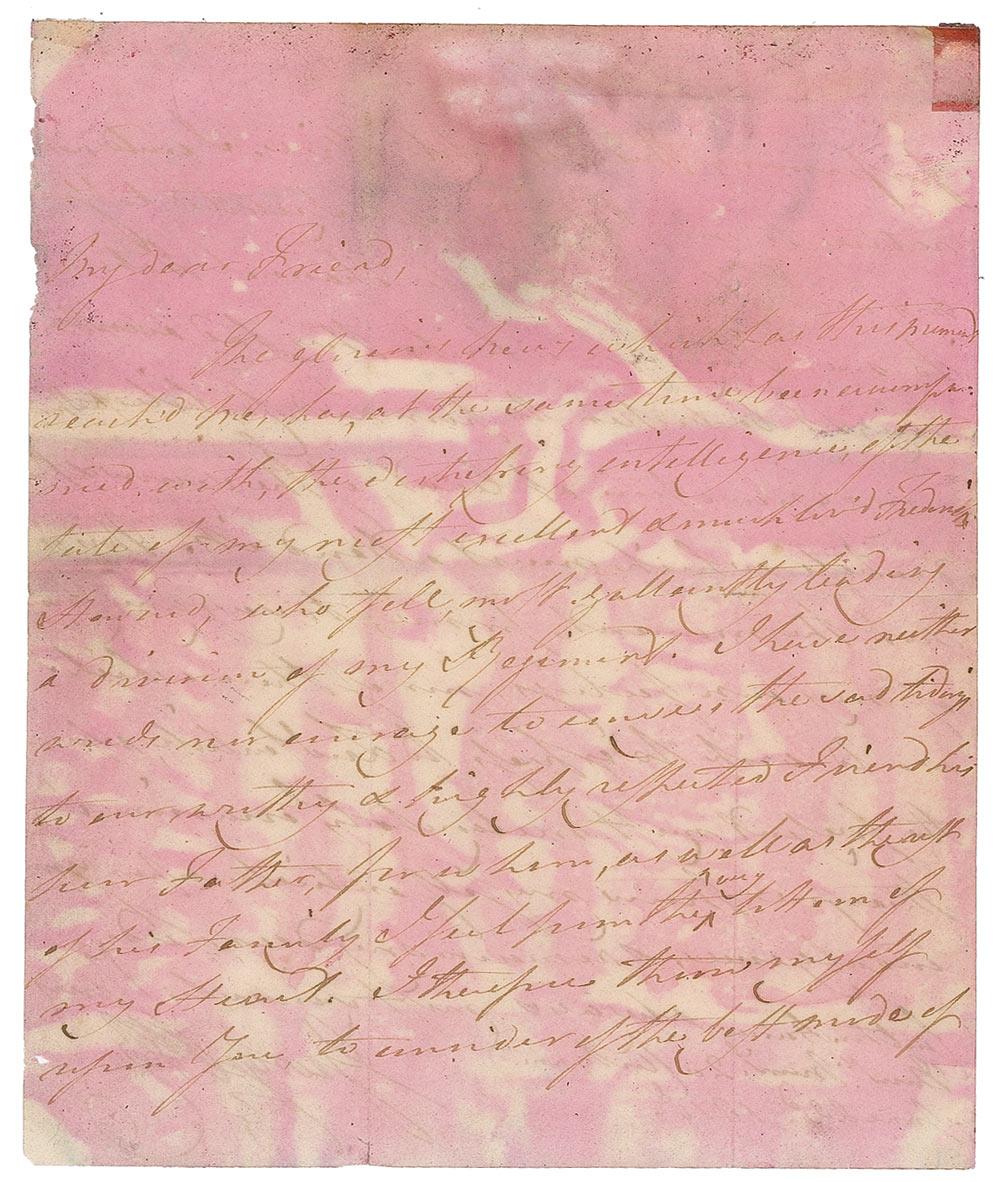 My dear Friend,
The glorious news which has this moment
reach'd me, has, at the same time been accompa-
nied, with, the distressing intelligence, of the
fate of my most excellent & much lov'd Frederick
Howard, who fell, most gallantly leading
a division of my Regiment. I have neither
words nor courage to convey the sad tidings
to our worthy & highly respected Friend his
poor Father, for whom, as well as the rest
of his Family I feel from the very bottom of
my Heart. I therefore throw myself
upon You, to consider of the best mode of